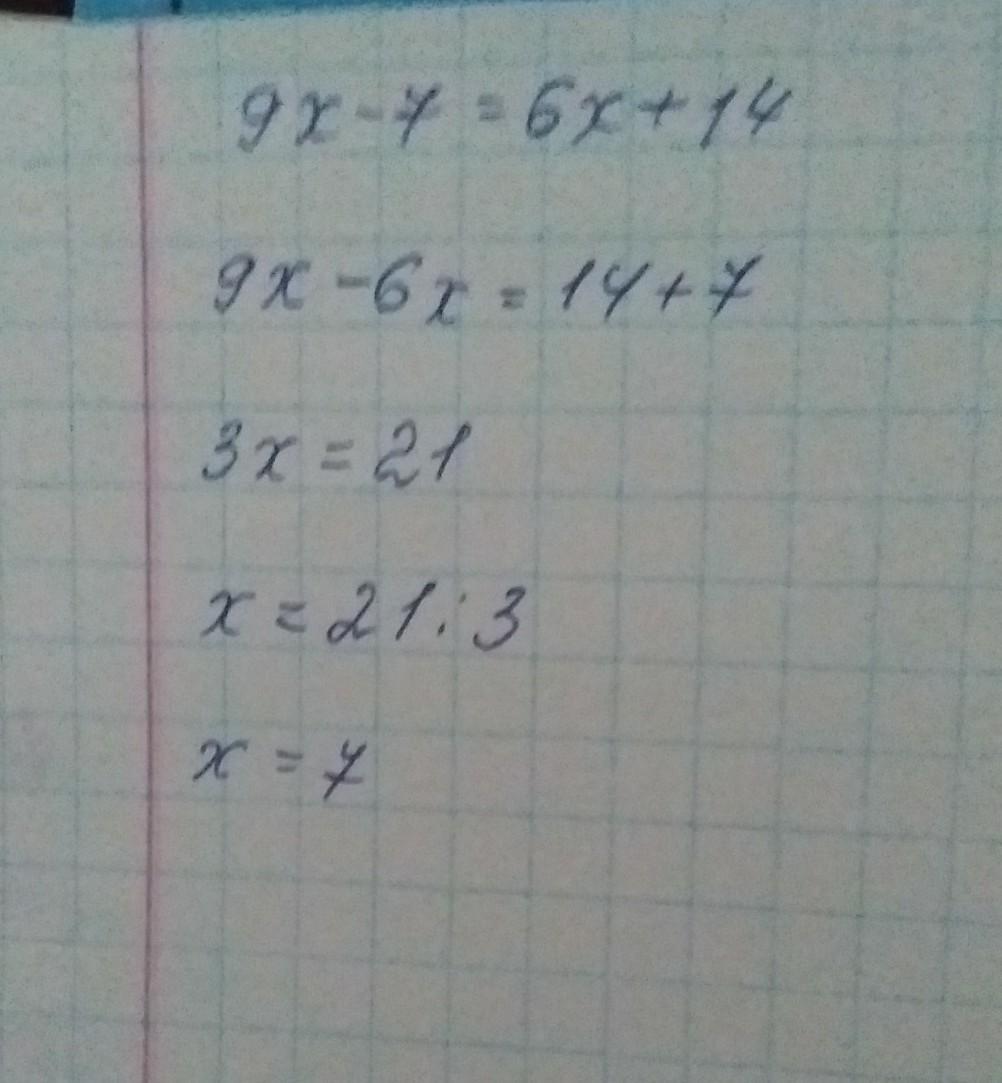 9x-7=6x+14
9x-6x=14+7
3x=21
x=21:3
x=7